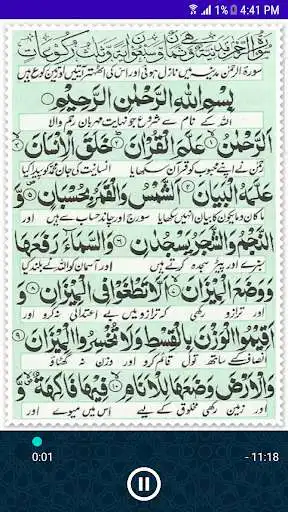 4:41 PM
سورۃ الرحمٰن مدینہ میں نازل ہوئی اور اس کی اٹھتر آیتیں اور تین رکوع ہیں
بِسْمِ اللهِ الرَّحْمٰنِ الرَّحِيْمِ
اللہ کے نام سے شروع جو نہایت مہربان رحم والا
اَلرَّحْمٰنُ ۙ۱ عَلَّمَ الْقُرْاٰنَ ۙ۲ خَلَقَ الْاِنْسَانَ ۙ۳
رحمٰن نے اپنے محبوب کو قرآن سکھایا انسانیت کی جان محمد کو پیدا کیا
عَلَّمَهُ الْبَيَانَ ۴ اَلشَّمْسُ وَالْقَمَرُ بِحُسْبَانٍ ۵ وَّ
ماکان ومایکون کا بیان انھیں سکھایا سورج اور چاند حساب سے ہیں اور
النَّجْمُ وَالشَّجَرُ يَسْجُدٰنِ ۶ وَالسَّمَآءَ رَفَعَهَا
سبزے اور پیڑ سجدہ کرتے ہیں اور آسمان کو اللہ نے بلند کیا
وَوَضَعَ الْمِيْزَانَ ۷ اَلَّا تَطْغَوْا فِي الْمِيْزَانِ ۸ وَ
اور ترازو رکھی کہ ترازو میں بے اعتدالی نہ کرو اور
اَقِيْمُوا الْوَزْنَ بِالْقِسْطِ وَلَا تُخْسِرُوا الْمِيْزَانَ ۹
انصاف کے ساتھ تول قائم کرو اور وزن نہ گھٹاؤ
وَالْاَرْضَ وَضَعَهَا لِلْاَنَامِ ۱۰ فِيْهَا فَاكِهَةٌ وَّ
اور زمین رکھی مخلوق کے لیے اس میں میوے اور
0:01
- 11:18